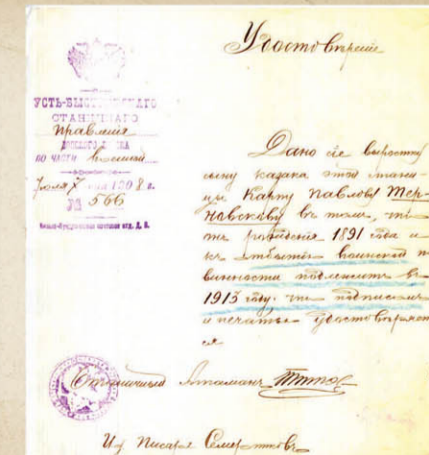 Удостовѣренiе
УСТЬ-БЫСТРЯНСКАГО
СТАНИЧНАГО
Правленiя
ДОНСКОГО ВОЙСКА
ПО ЧАСТИ Военной
Iюля 7 дня 1908 г.
№ 566
Дано сiе выростку
сыну казака этой стани-
цы Карпу Павлову Тер-
новскову въ томъ, что
онъ рожденiя 1891 года и
къ отбытiю воинской п
винности подлежитъ въ
1913 году. что подписомъ
и печатью удостовѣряет
ся
Станичный Атаманъ
И д Писаря